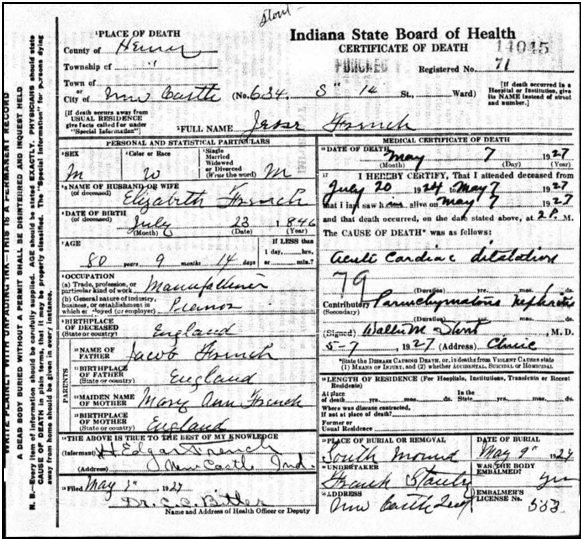 Stout
Indiana State Board of Health
CERTIFICATE OF DEATH
PUNCHED 14045
Registered No. 71
PLACE OF DEATH
County of Henry
Township of "
Town of
or
City of New Castle (No. 634 S 14 St., Ward)
[If death occurred in a Hospital or Institution, give its NAME instead of street and number.]
[If death occurs away from USUAL RESIDENCE give facts called for under "Special Information"]
FULL NAME Jesse French
PERSONAL AND STATISTICAL PARTICULARS
SEX M
Color or Race W
Single
Married
Widowed
or Divorced
(Write the word) M
NAME OF HUSBAND OR WIFE
(of deceased) Elizabeth French
DATE OF BIRTH
(of deceased) July 23 1846
(Month) (Date) (Year)
AGE
80 years 9 months 14 days
If LESS than
1 day,......hrs.
or......min.?
OCCUPATION
(a) Trade, profession, or
particular kind of work Manufacturer
(b) General nature of industry,
business, or establishment in
which employed (or employer) Pianos
BIRTHPLACE
OF DECEASED
(State or country) England
PARENTS
NAME OF
FATHER Jacob French
BIRTHPLACE
OF FATHER
(State or country) England
MAIDEN NAME
OF MOTHER Mary Ann French
BIRTHPLACE
OF MOTHER
(State or country) England
THE ABOVE IS TRUE TO THE BEST OF MY KNOWLEDGE
(Informant) H Edgar French
(Address) New Castle Ind.
Filed May 1927
Dr. C.C. Bitler
Name and Address of Health Officer or Deputy
MEDICAL CERTIFICATE OF DEATH
DATE OF DEATH
May 7 1927
(Month) (Day) (Year)
I HEREBY CERTIFY, That I attended deceased from
July 20 1924 to May 7 1927
that I last saw him alive on May 7 1927
and that death occurred, on the date stated above, at 2 P. M.
The CAUSE OF DEATH was as follows:
Acute Cardiac dilatation
79
(Duration) yrs. mos. ds.
Contributory Parenchymatous Nephritis
(Secondary)
(Duration) yrs. mos. ds.
(Signed) Walter M Stout M. D.
5-7 1927 (Address) Clinic
*State the DISEASE CAUSING DEATH, or, in deaths from VIOLENT CAUSES state
(1) MEANS OF INJURY; and (2) whether ACCIDENTAL, SUICIDAL or HOMICIDAL
LENGTH OF RESIDENCE (For Hospitals, Institutions, Transients or Recent Residents)
At place
of death......yrs.......mos.......ds. State......yrs.......mos.......ds.
Where was disease contracted,
If not at place of death?
Former or
Usual residence
PLACE OF BURIAL OR REMOVAL
South Mound
DATE OF BURIAL
May 9" 1927
UNDERTAKER
Frank Stanley
WAS THE BODY
EMBALMED? Yes
ADDRESS
New Castle Ind
EMBALMER'S
LICENSE No. 553
WRITE PLAINLY WITH UNFADING INK—THIS IS A PERMANENT RECORD
A DEAD BODY BURIED WITHOUT A PERMIT SHALL BE DISINTERRED AND INQUEST HELD
N. B.—Every item of information should be carefully supplied. AGE should be stated EXACTLY. PHYSICIANS should state
CAUSE OF DEATH in plain terms, that it may be properly classified. The "Special Information" for persons dying
away from home should be given in every instance.